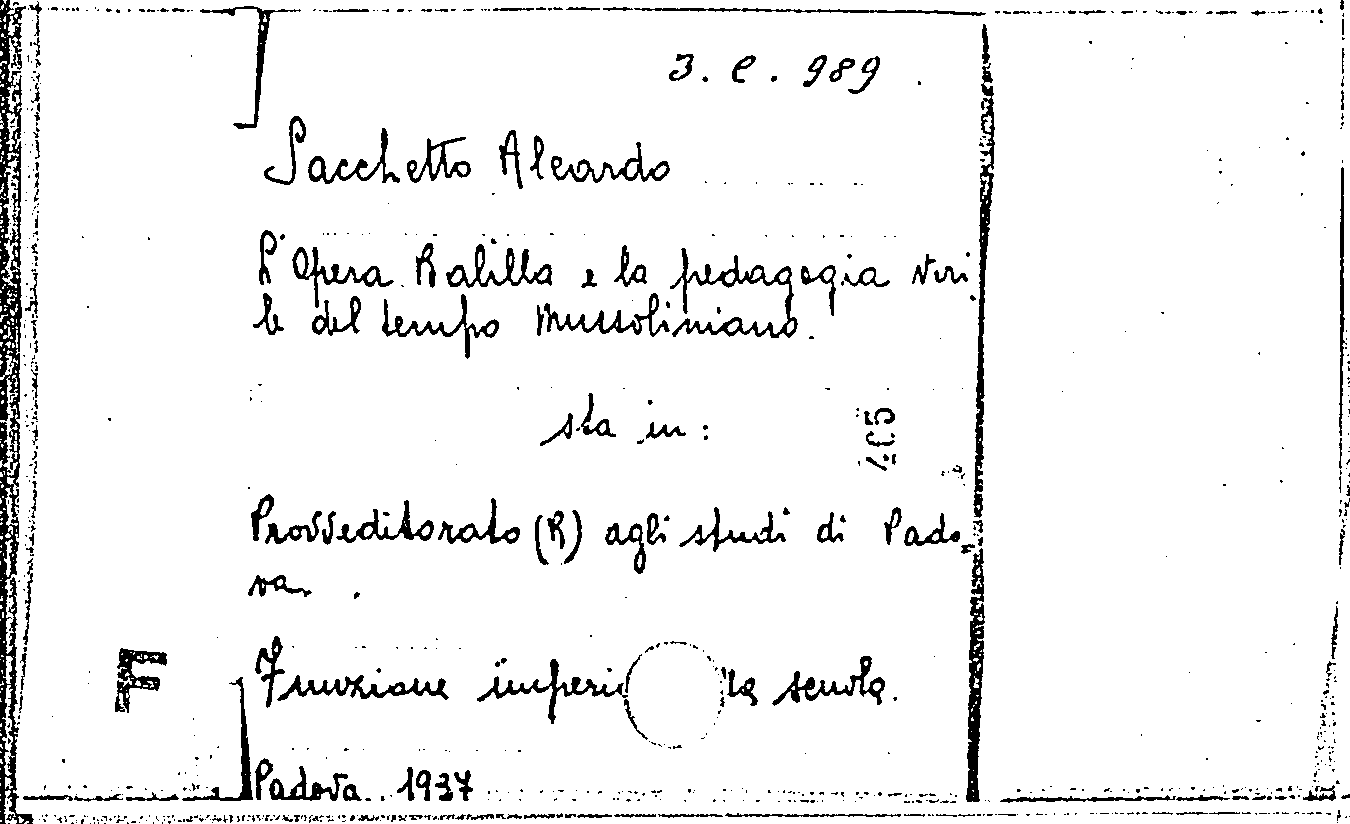 3. C. 989
Sacchetto Aleardo
L'Opera Balilla e la pedagogia viri-
le del tempo Mussoliniano.
sta in:
405
Provveditorato (R) agli studi di Pado-
va.
F
Funzione imperi la scuola.
Padova 1937